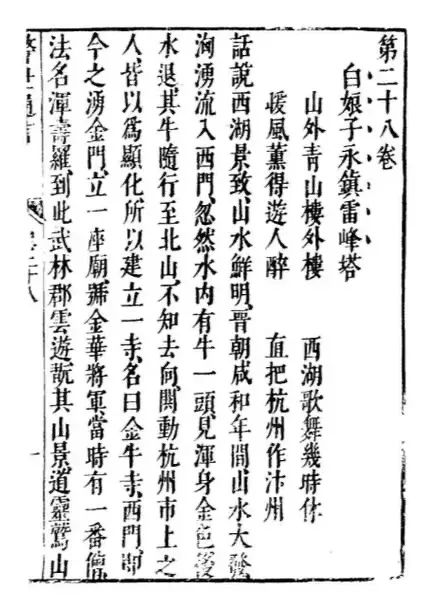 第二十八卷
白娘子永鎮雷峰塔
山外青山樓外樓　西湖歌舞幾時休
暖風薰得遊人醉　直把杭州作汴州
話說西湖景致、山水鮮明、晉朝咸和年間、山水大發
洶湧流入西門、忽然水內有牛一頭、見渾身金色、後
水退、其牛隨行至北山、不知去向、鬨動杭州市上之
人、皆以爲顯化、所以建立一寺、名曰金牛寺、西門、即
今之湧金門、立一座廟、號金華將軍、當時有一番僧
法名渾壽羅、到此武林郡雲遊、翫其山景、道靈鷲山
二十八
一